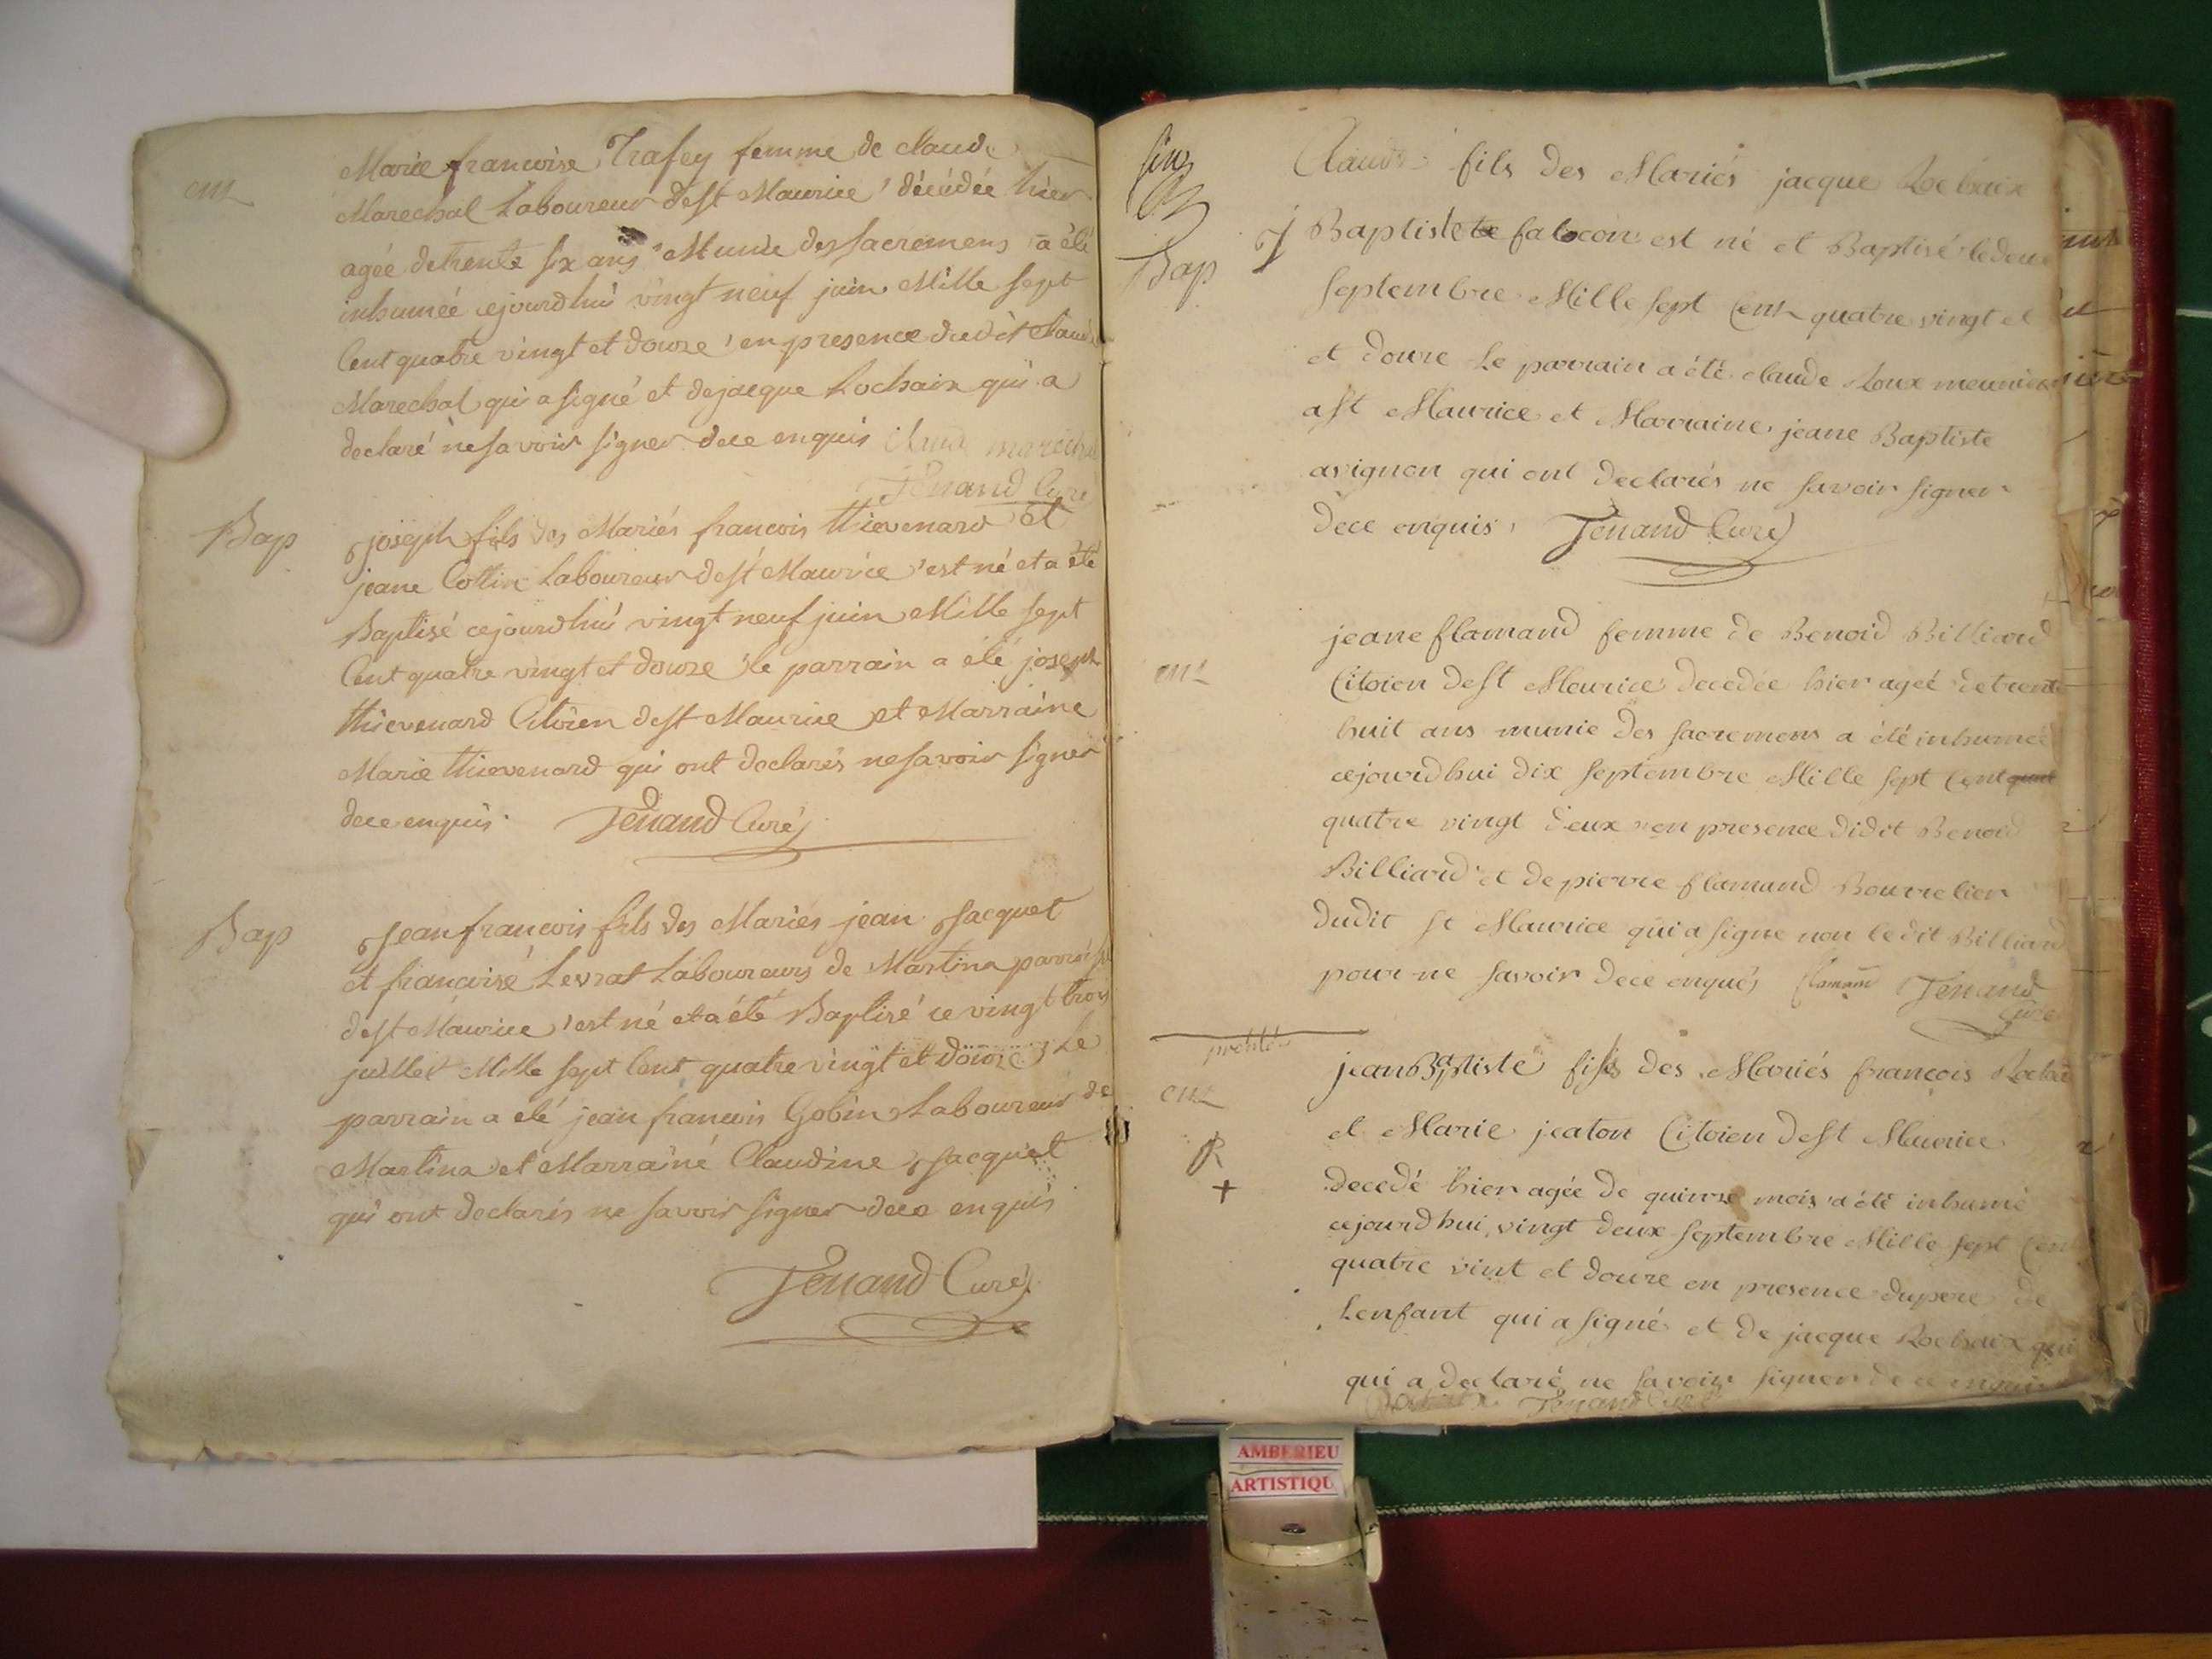 ent
Marie francoise Trafey femme de claude
Marechal Laboureur de st Maurice décédée hier
agée de trente six ans Munie des sacremens a été
inhumée cejourdhui vingt neuf juin Mille sept
Cent quatre vingt et douze en presence dudit Claude
Marechal qui a signé et de jacque Rochaix qui a
declaré ne savoir signer de ce enquis Claude marechal
Tenand Curé
Bap
joseph fils des Mariés francois thievenard et
jeane Collin Laboureur de st Maurice est né et a été
Baptisé cejourdhui vingt neuf juin Mille sept
Cent quatre vingt et douze le parrain a été joseph
thievenard Citoien de st Maurice et Marraine
Marie thievenard qui ont declarés ne savoir signer
de ce enquis Tenand Curé
Bap
jean francois fils des Mariés jean jacquet
et francoise Levrat Laboureurs de Martina parroisse
de st Maurice est né et a été Baptisé ce vingt trois
juillet Mille sept Cent quatre vingt et douze Le
parrain a été jean francois Gobin Laboureur de
Martina et Marraine Claudine jacquet
qui ont declarés ne savoir signer de ce enquis
Tenand Curé
Bap
Claude fils des Mariés jacque Rochaix
j Baptiste te falcon est né et Baptisé le deux
septembre Mille sept Cent quatre vingt et
et douze Le parrain a été claude Roux meunier
a st Maurice et Marraine jeane Baptiste
avignon qui ont declarés ne savoir signer
de ce enquis Tenand Curé
ent
jeane flamand femme de Benoid Billiard
Citoien de st Maurice decedée hier agée de trente
huit ans munie des sacremens a été inhumée
cejourdhui dix septembre Mille sept Cent quat
quatre vingt deux en presence didit Benoid
Billiard et de pierre flamand Bourrelier
dudit st Maurice qui a signe non ledit Billiard
pour ne savoir de ce enqués flamand Tenand
Curé
ent
R
+
jean Baptiste fils des Mariés francois Rochaix
et Marie jeaton Citoien de st Maurice
decedé hier agée de quinze mois a été inhumé
cejourdhui vingt deux septembre Mille sept Cent
quatre vint et douze en presence du pere de
Lenfant qui a signé et de jacque Rochaix qui
qui a declaré ne savoir signer de ce enquis
Rochaix Tenand Curé
AMBERIEU
ARTISTIQU